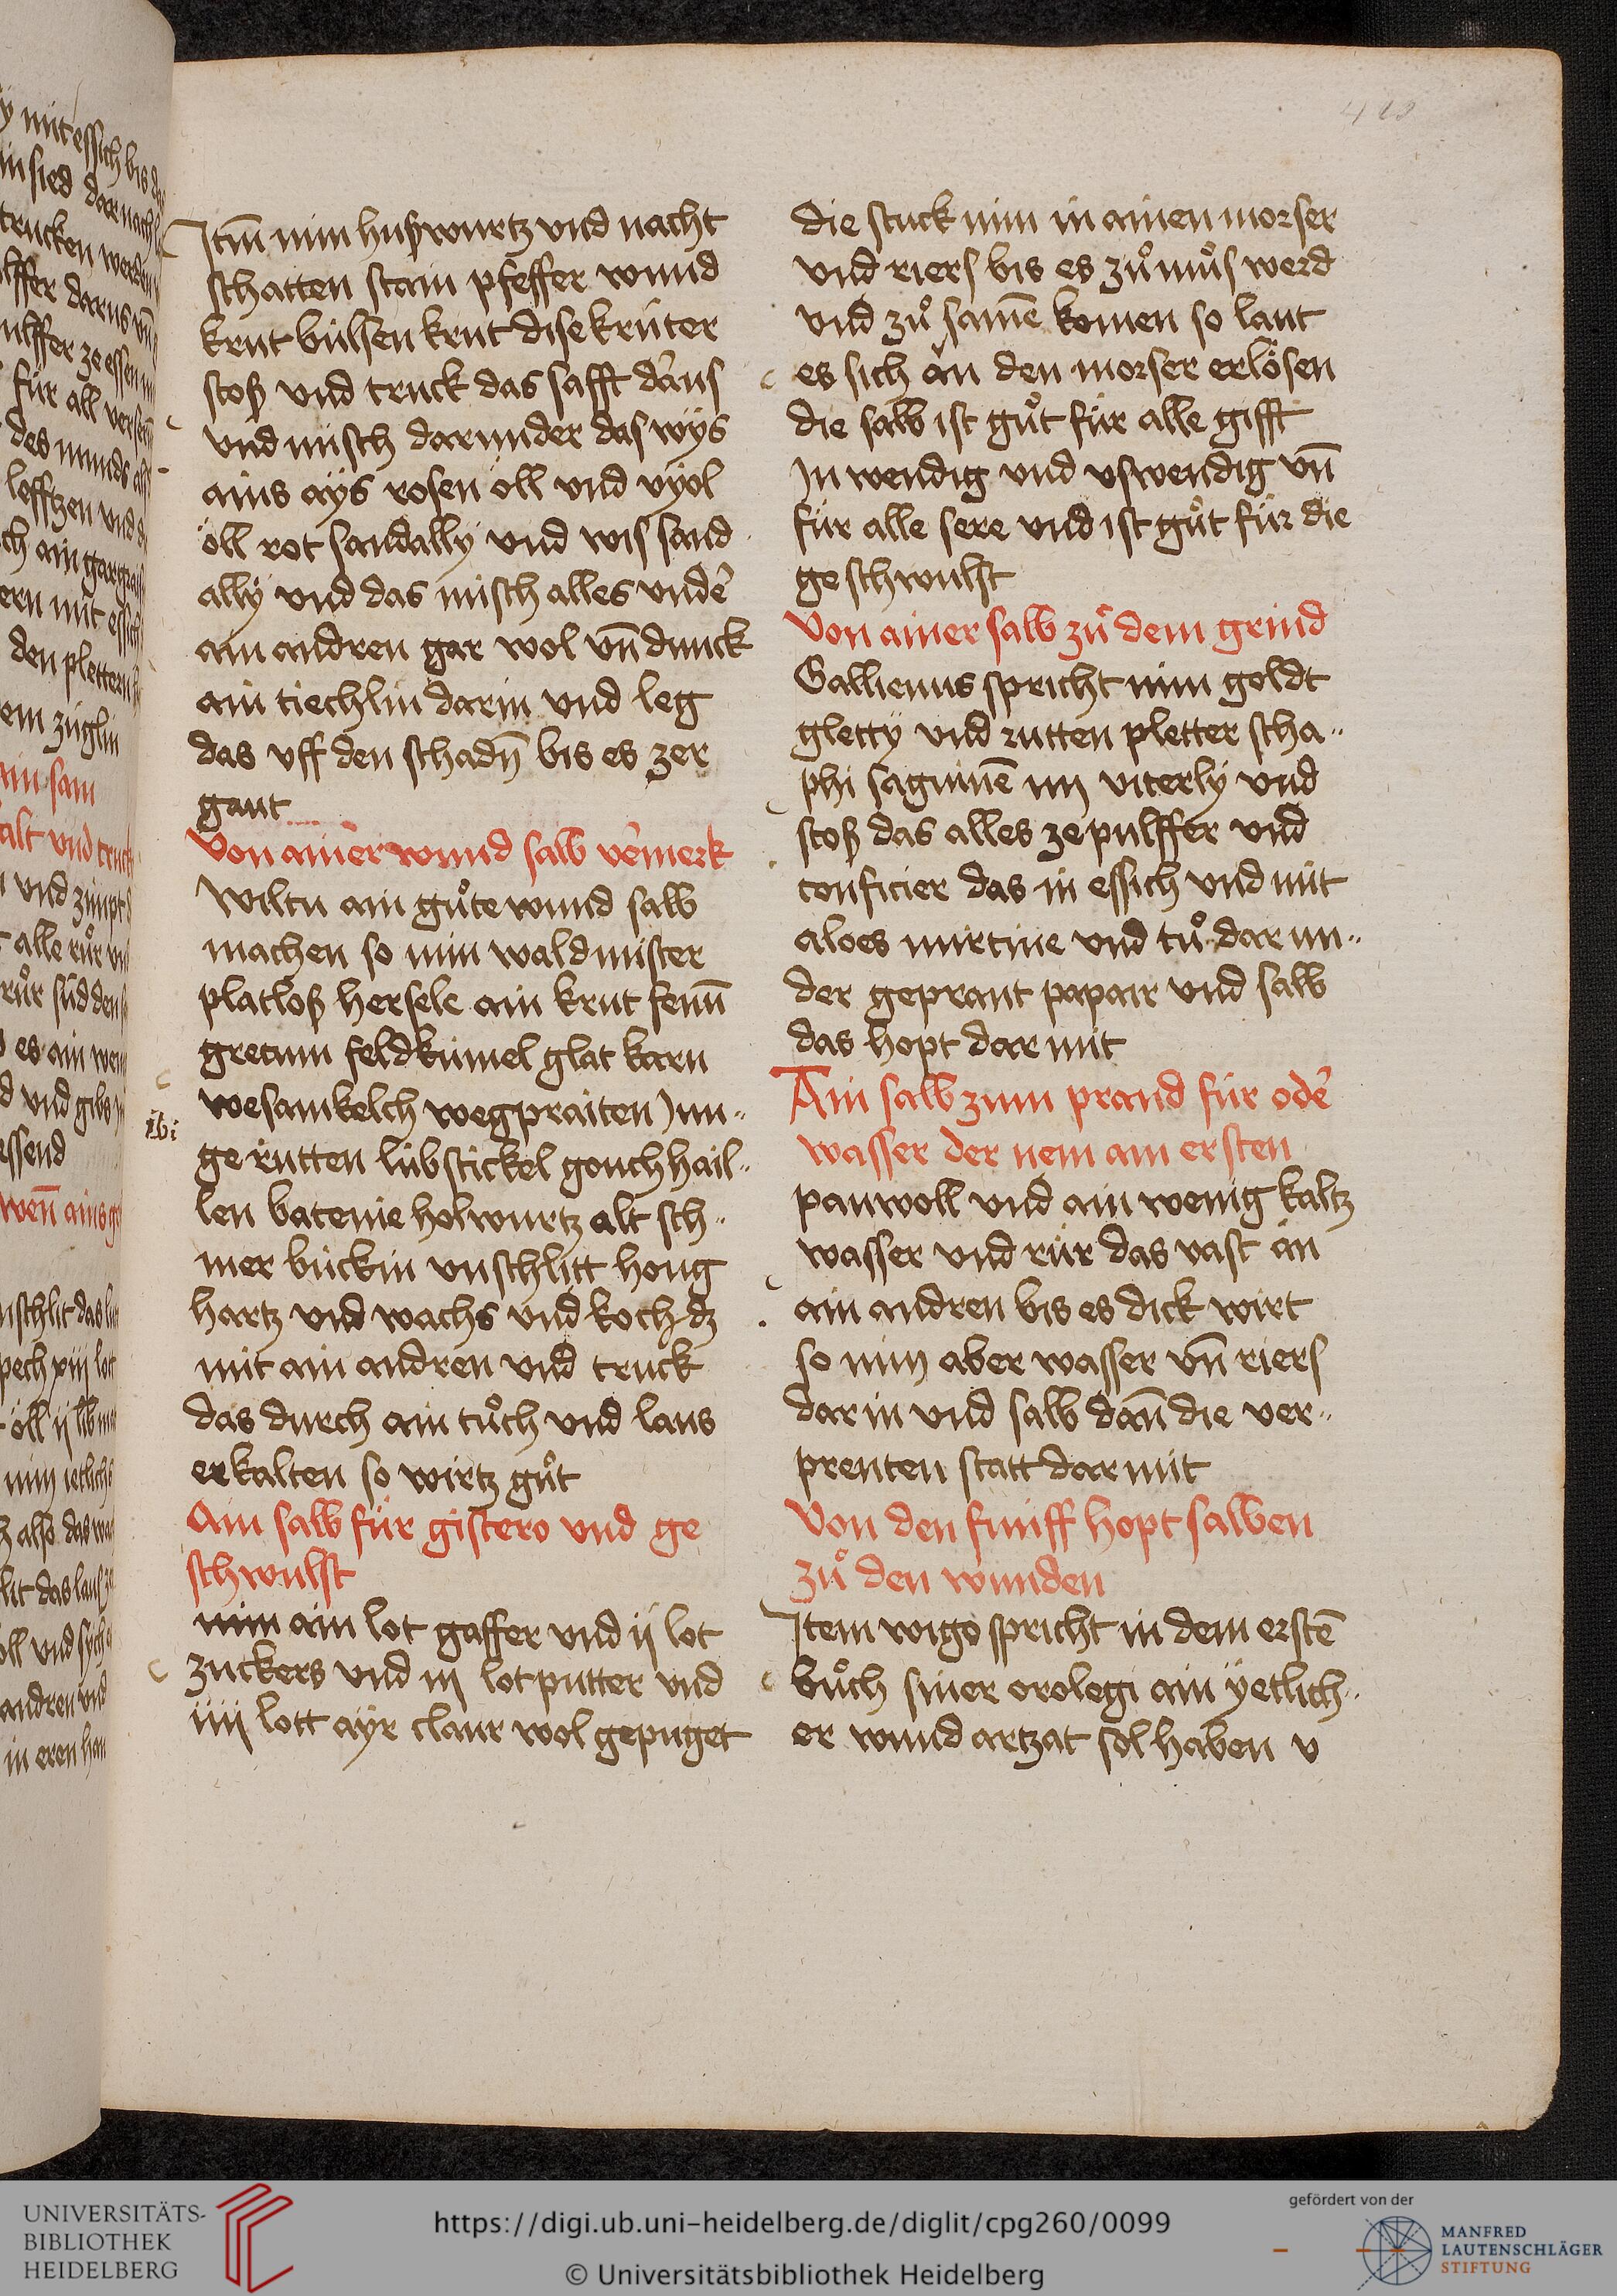 Itm̄ nim hußwurtz vnd nacht
schatten stain pfeffer wund
krut bülsen krut dise krüter
stoß vnd truck das safft darus
vnd misch darunder das wÿs
ains aÿs rosen öll vnd vÿol
öll rot sandally vnd wis sand
ally vnd das misch alles vnde᷑
ain andren gar wol vn̄ dunck
ain tiechlin darin vnd leg
das vff den schadn̄ bis es zer
gaut
Von ainer wund salb ve᷑merk
Wiltu ain gůte wund salb
machen so nim waldmister
platloß hersele ain krut fenū
grecum feldkümel glat karn
wesamkelch wegpraiten Jun„
xbi
ge rutten lübstickel gouchhail„
len batenie holwurtz alt sch„
mer bückin vnschlitt hong
hartz vnd wachs vnd koch dz
mit ain andren vnd truck
das durch ain tůch vnd laus
erkalten so wirtz gůt
Ain salb für gistero vnd ge
schwulst
nim ain lot gaffer vnd ij lot
zuckers vnd iij lot putter vnd
iiij lott aÿr claur wol gepuget
die stuck nim in ainen morser
vnd riers bis es zů můs werd
vnd zů samē komen so laut
es sich an den morser erlösen
die salb ist gůt für alle gifft
Inwendig vnd vswendig vn̄
für alle sere vnd ist gůt für die
geschwulst
Von ainer salb zů dem grind
Gallienus spricht nim goldt
gletty vnd rutten pletter scha„
phi saguinē iiij viterly vnd
stoß das alles ze pulffer vnd
conficier das in essich vnd mit
aloes mirtine vnd tů dar un„
der geprant papair vnd salb
das hopt dar mit
Ain salb zum prand für ode᷑
wasser der nem am ersten
panwoll vnd ain wenig kaltz
wasser vnd rür das vast an
ain andren bis es dick wirt
so nim aber wasser vn̄ riers
dar in vnd salb dan̄ die ver„
prenten statt dar mit
Von den funff hopt salben
zů den wunden
Item wigo spricht in dem erstē
bůch siner orolegi ain ÿetlich„
er wund artzat sol haben v
UNIVERSITÄTS-
BIBLIOTHEK
HEIDELBERG
https://digi.ub.uni-heidelberg.de/diglit/cpg260/0099
© Universitätsbibliothek Heidelberg
gefördert von der
MANFRED
LAUTENSCHLÄGER
STIFTUNG